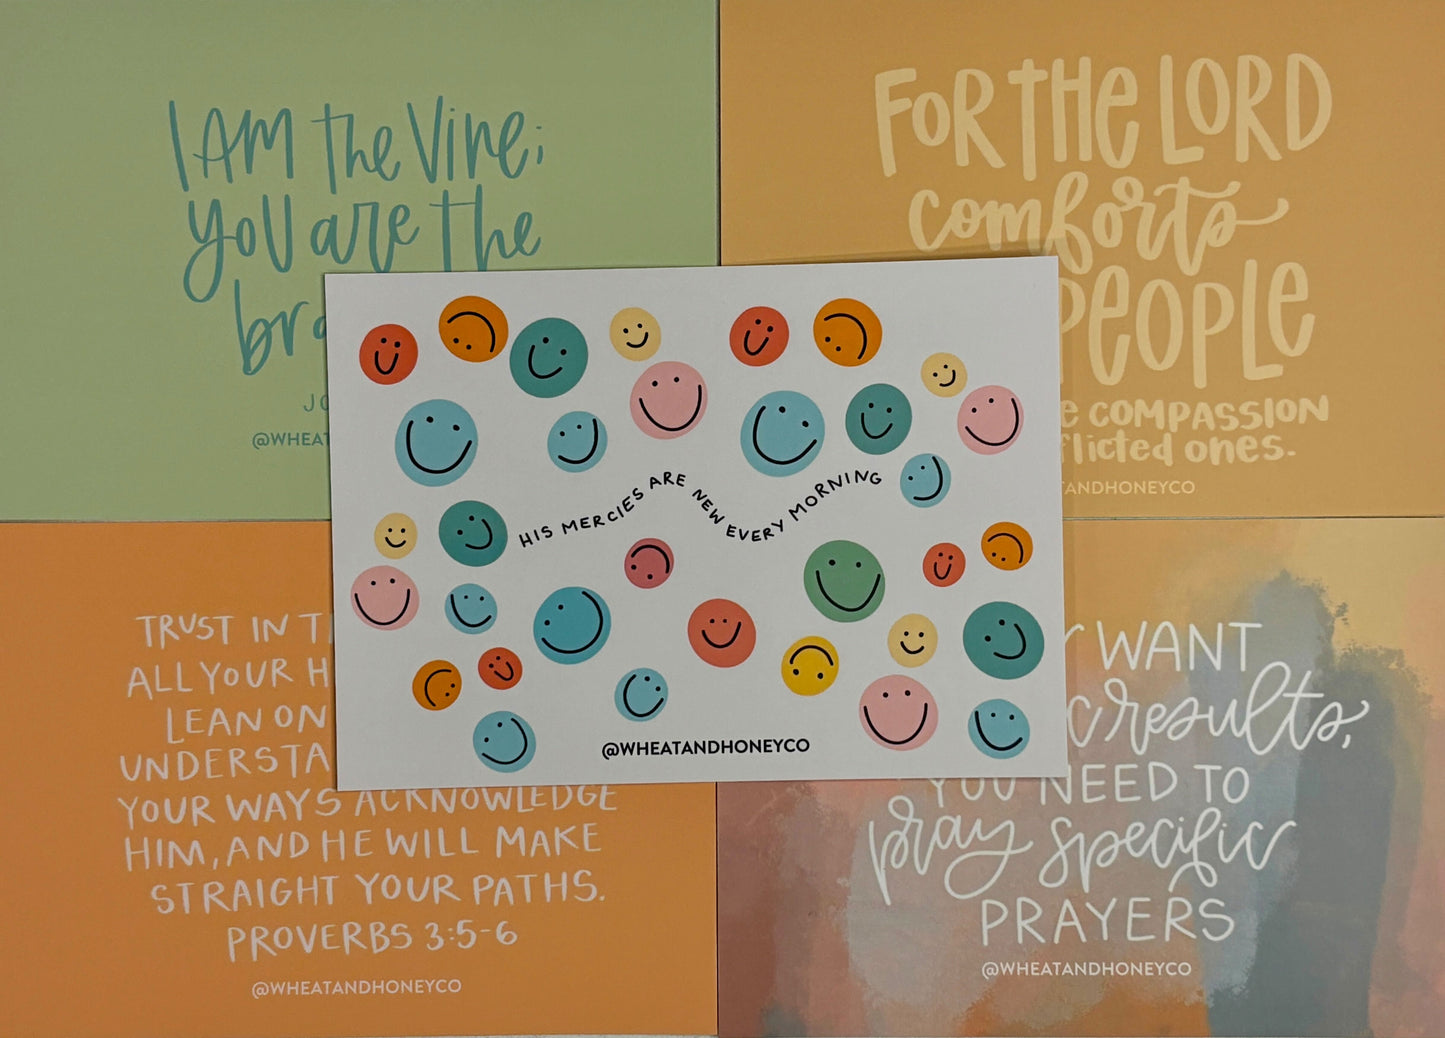 I AM the Vine;
you are the
JO
@WHEAT
FOR THE LORD
comforts
PEOPLE
COMPASSION
ones.
ANDHONEYCO
HIS MERCIES ARE NEW EVERY MORNING
@WHEATANDHONEYCO
TRUST IN
ALL YOUR
LEAN ON
UNDERSTA
YOUR WAYS ACKNOWLEDGE
HIM, AND HE WILL MAKE
STRAIGHT YOUR PATHS.
PROVERBS 3:5-6
@WHEATANDHONEYCO
WANT
results,
YOU NEED TO
pray specific
PRAYERS
@WHEATANDHONEYCO